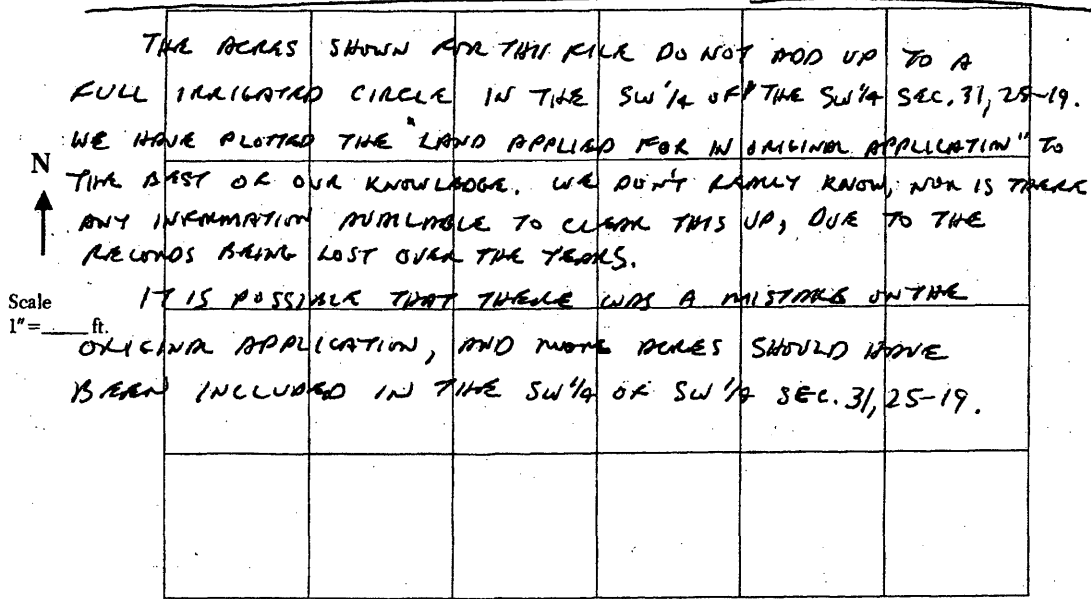 THE ACRES SHOWN FOR THIS FILE DO NOT ADD UP TO A
FULL IRRIGATED CIRCLE IN THE SW 1/4 OF THE SW 1/4 SEC. 31, 25-19.
WE HAVE PLOTTED THE "LAND APPLIED FOR IN ORIGINAL APPLICATION" TO
N
THE BEST OF OUR KNOWLEDGE. WE DON'T REALLY KNOW, NOR IS THERE
ANY INFORMATION AVAILABLE TO CLEAR THIS UP, DUE TO THE
RECORDS BEING LOST OVER THE YEARS.
Scale
IT IS POSSIBLE THAT THERE WAS A MISTAKE ON THE
1"=____ ft.
ORIGINAL APPLICATION, AND MORE ACRES SHOULD HAVE
BEEN INCLUDED IN THE SW 1/4 OF SW 1/4 SEC. 31, 25-19.